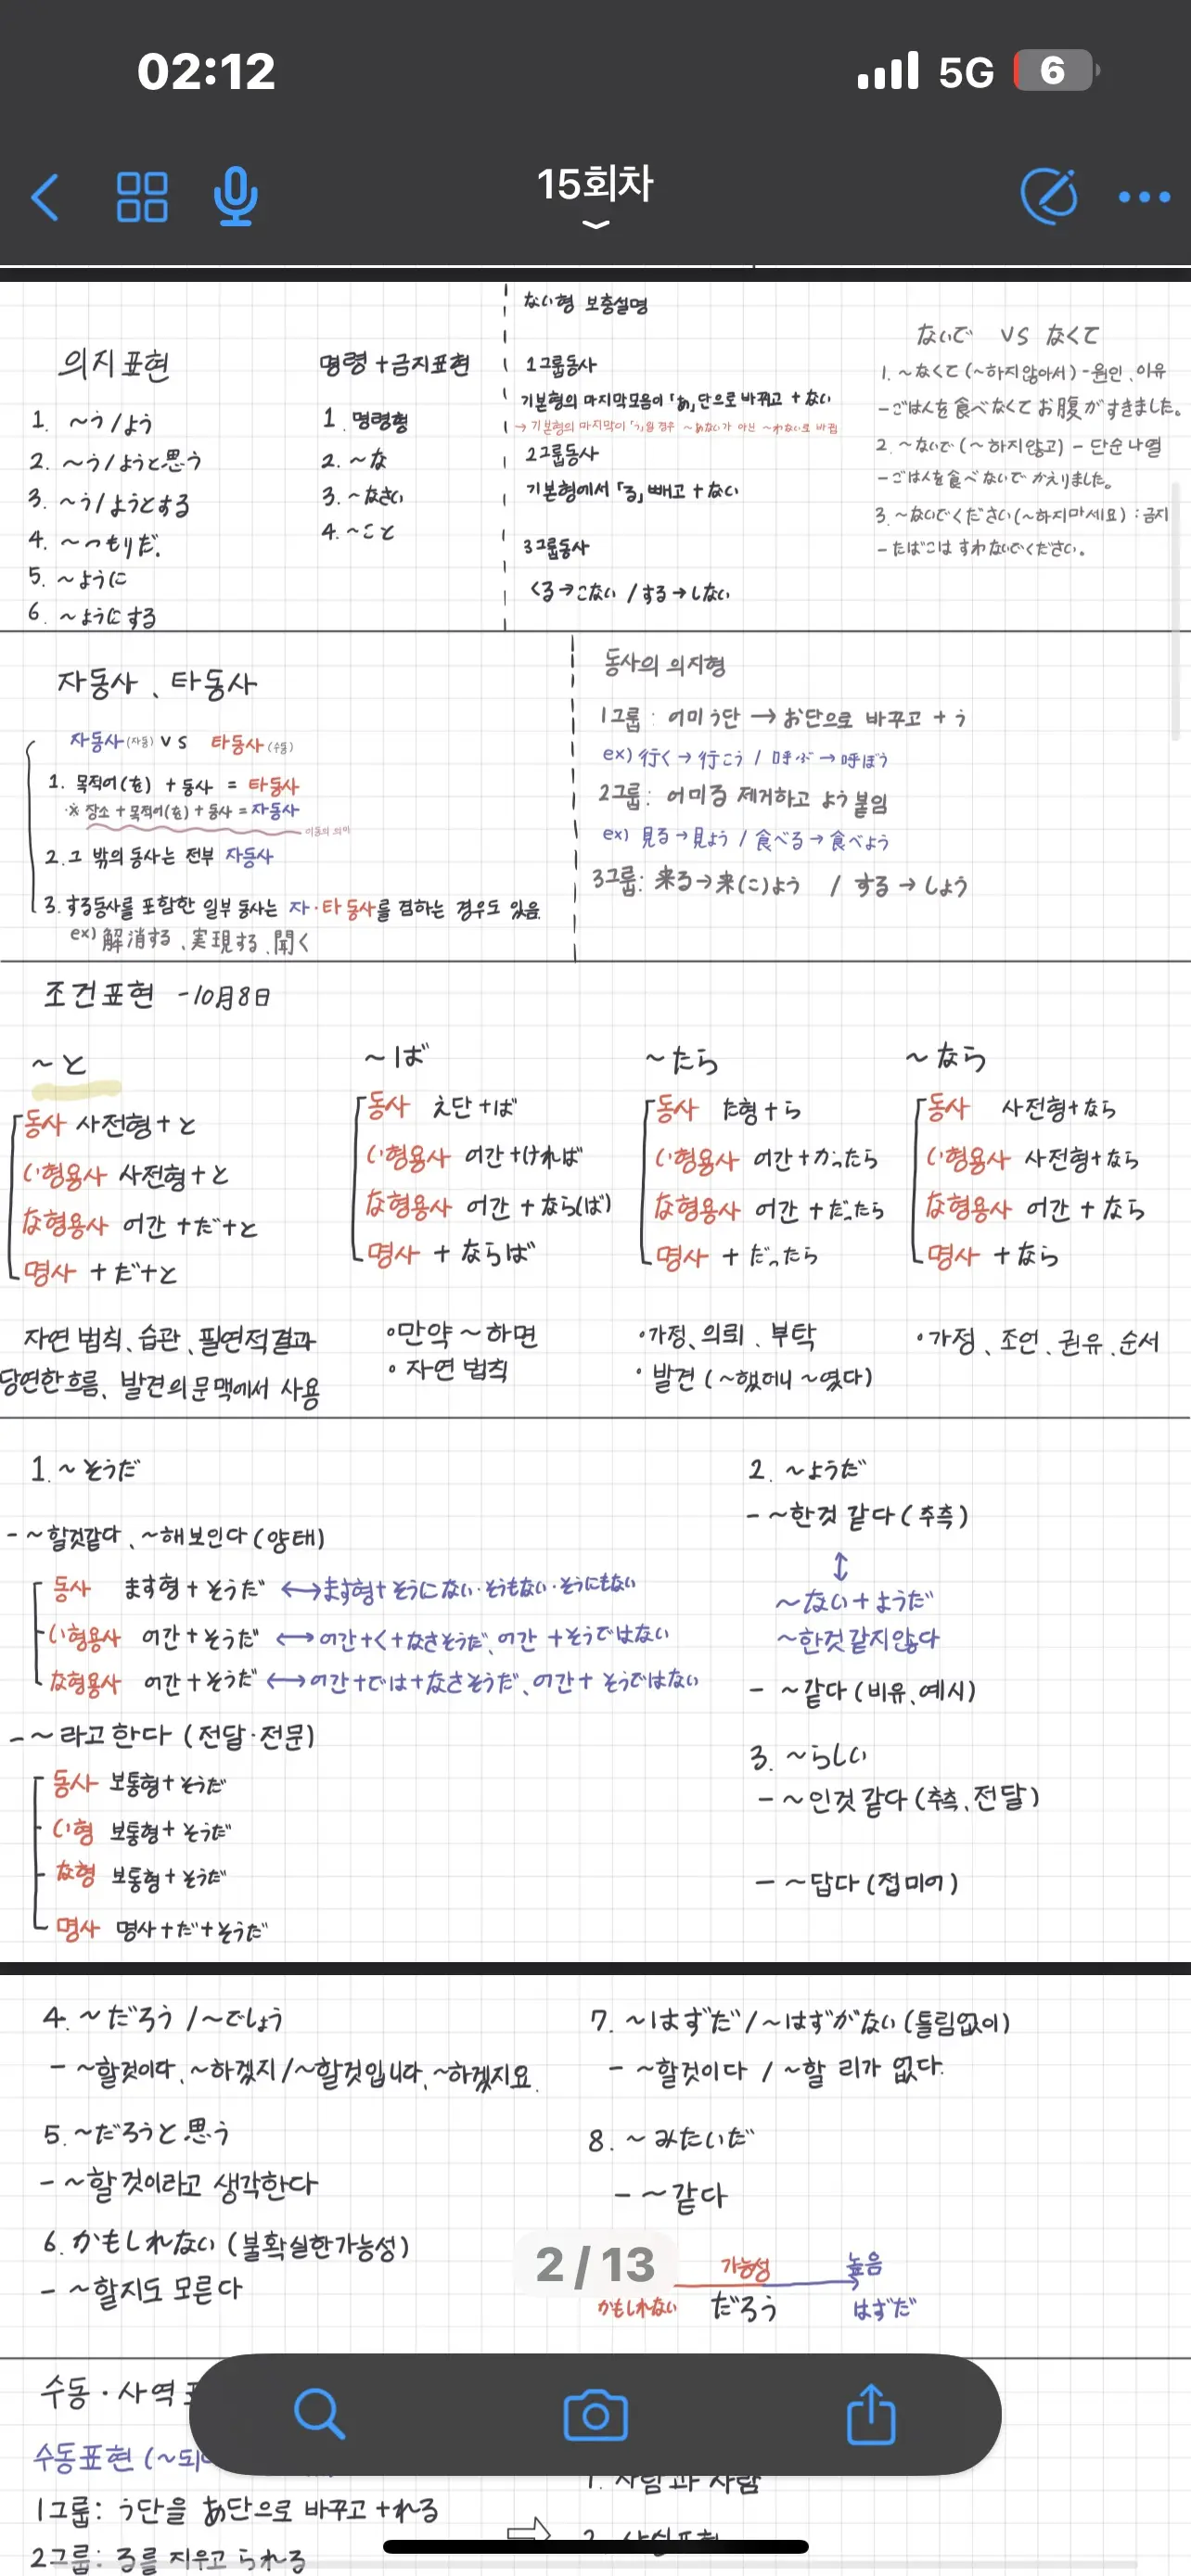 02:12
5G 6
15회차
의지표현
1. ~う/よう
2. ~う/ようと思う
3. ~う/ようとする
4. ~つもりだ.
5. ~ように
6. ~ようにする
명령+금지표현
1. 명령형
2. ~な
3. ~なさい
4. ~こと
ない형 보충설명
1그룹동사
기본형의 마지막모음이「あ」단으로 바뀌고 + ない
→ 기본형의 마지막이「う」일 경우 ~あない가 아닌 ~わない로 바뀜
2그룹동사
기본형에서「る」빼고 + ない
3그룹동사
くる→こない / する→しない
ないで VS なくて
1. ~なくて (~하지않아서) - 원인、이유
- ごはんを食べなくてお腹がすきました。
2. ~ないで (~하지않고) - 단순나열
- ごはんを食べないでかえりました。
3. ~ないでください(~하지마세요) : 금지
- たばこはすわないでください。
자동사、타동사
자동사(자동) VS 타동사(수동)
1. 목적어(を) + 동사 = 타동사
※ 장소 + 목적어(を) + 동사 = 자동사
이동의 의미
2. 그 밖의 동사는 전부 자동사
3. する동사를 포함한 일부 동사는 자·타동사를 겸하는 경우도 있음
ex) 解消する、実現する、聞く
동사의 의지형
1그룹 : 어미 う단 → お단으로 바꾸고 + う
ex) 行く→行こう / 呼ぶ→呼ぼう
2그룹 : 어미る 제거하고 よう 붙임
ex) 見る→見よう / 食べる→食べよう
3그룹: 来る→来(こ)よう / する→しよう
조건표현 -10月8日
~と
동사 사전형+と
い형용사 사전형+と
な형용사 어간+だ+と
명사 +だ+と
자연 법칙、습관、필연적결과
당연한흐름、발견의문맥에서 사용
~ば
동사 え단+ば
い형용사 어간+ければ
な형용사 어간+なら(ば)
명사 + ならば
◦만약 ~하면
◦ 자연 법칙
~たら
동사 た형+ら
い형용사 어간+かったら
な형용사 어간+だったら
명사 + だったら
·가정、의뢰、부탁
· 발견 (~했더니 ~였다)
~なら
동사 사전형+なら
い형용사 사전형+なら
な형용사 어간+なら
명사 +なら
·가정、조언、권유、순서
1. ~そうだ
- ~할것같다、~해보인다 (양태)
동사 ます형+そうだ ↔ ます형+そうにない·そうもない·そうにもない
い형용사 어간+そうだ ↔ 어간+く+なさそうだ、어간+そうではない
な형용사 어간+そうだ ↔ 어간+では+なさそうだ、어간+そうではない
- ~라고 한다 (전달·전문)
동사 보통형+そうだ
い형 보통형+そうだ
な형 보통형+そうだ
명사 명사+だ+そうだ
2. ~ようだ
- ~한것 같다 (추측)
↕
~ない+ようだ
~한것 같지않다
- ~같다 (비유、예시)
3. ~らしい
- ~인것 같다 (추측、전달)
- ~답다 (접미어)
4. ~だろう /~でしょう
- ~할것이다、~하겠지 /~할것입니다、~하겠지요.
5. ~だろうと思う
- ~할 것이라고 생각한다
6. かもしれない (불확실한가능성)
- ~할지도 모른다
7. ~はずだ/~はずがない (틀림없이)
- ~할것이다 / ~할 리가 없다.
8. ~みたいだ
- ~같다
2/13
가능성 높음
かもしれない だろう はずだ
수동·사역
수동표현 (~되
1그룹: う단을 あ단으로 바꾸고 +れる
2그룹: る를 지우고 られる
1. 사람과 사람